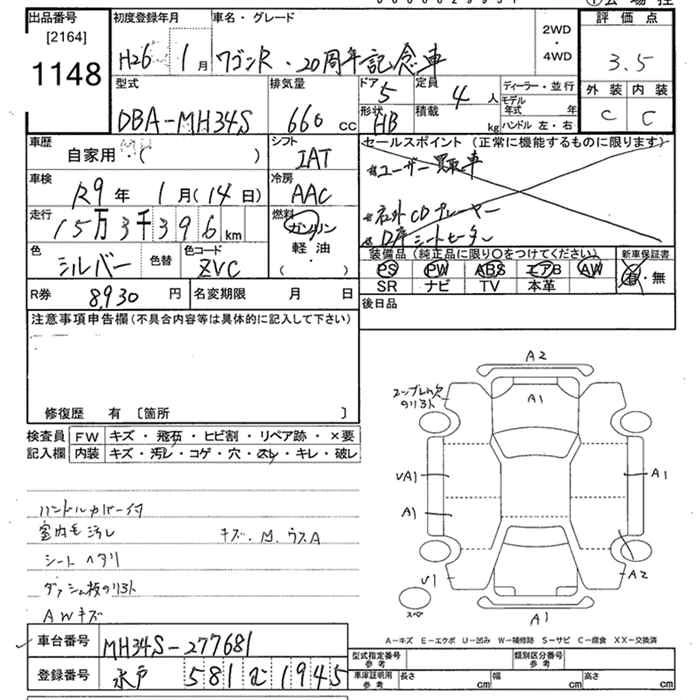 出品番号
[2164]
1148
初度登録年月
H26 1月
車名・グレード
ワゴンR・20周年記念車
2WD
・
4WD
評価点
3.5
外装 内装
C C
型式
DBA-MH34S
排気量
660 cc
ドア
5
定員
4 人
形状
HB
積載
kg
ディーラー・並行
モデル年式 年
ハンドル 左・右
車歴
自家用・( )
シフト
IAT
セールスポイント(正常に機能するものに限ります)
ユーザー買取車
社外CDプレーヤー
D席シートヒーター
車検
R9年 1月(14日)
冷房
AAC
走行
15万3千396km
燃料
ガソリン
軽・油
( )
色
シルバー
色替
色コード
ZVC
装備品(純正品に限り○をつけてください)
PS PW ABS エアB AW
SR ナビ TV 本革
新車保証書
有・無
R券 8,930円
名変期限 月 日
後日品
注意事項申告欄(不具合内容等は具体的に記入して下さい)
修復歴 有 [箇所 ]
検査員
記入欄
FW キズ・飛石・ヒビ割・リペア跡・×要
内装 キズ・汚レ・コゲ・穴・スレ・キレ・破レ
ハンドルカバー付
室内毛汚レ
キズ.M.ウスA
シートヘタリ
ダッシュ板のリヨト
AWキズ
A2
A1
UA1
A1
A1
U1
A2
A1
スペア
A-キズ E-エクボ U-凹み W-補修跡 S-サビ C-腐食 XX-交換済
車台番号 MH34S-277681
登録番号 水戸 581 む 1945
型式指定番号
参考
類別区分番号
参考
車庫証明用
参考
長さ cm
幅 cm
高さ cm